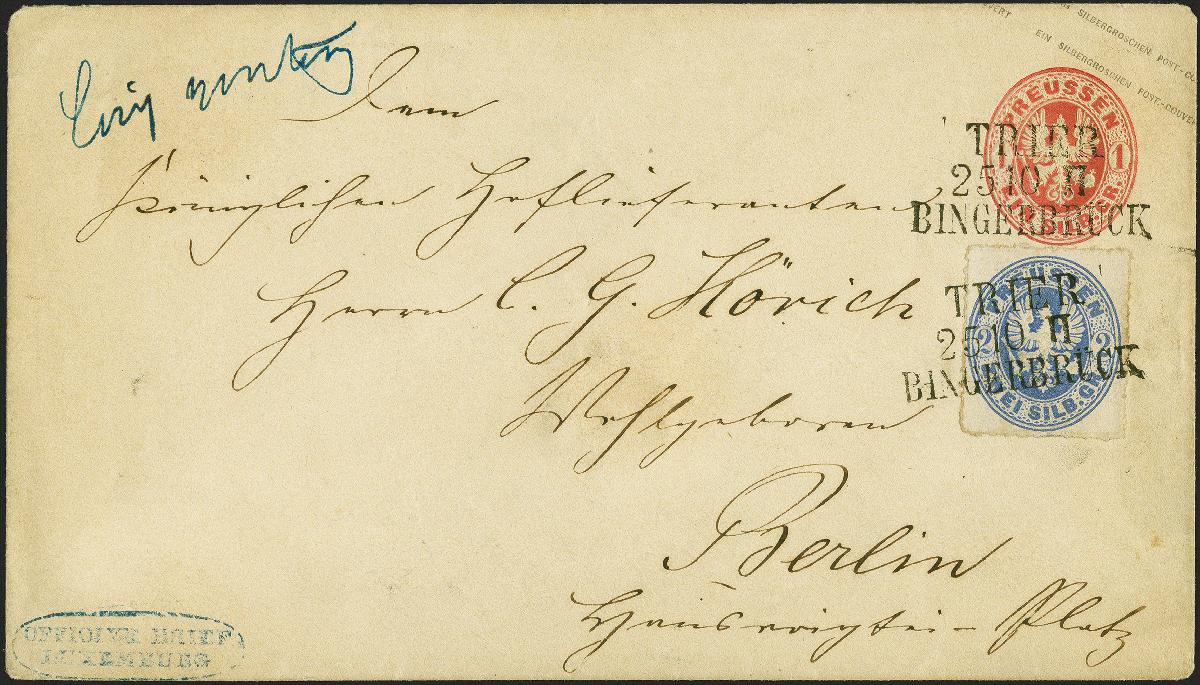 EIN SILBERGROSCHEN POST-COUVERT
EIN SILBERGROSCHEN POST-COUVERT
Dem
Königlichen Hoflieferanten
Herrn C. G. Hörich
Wohlgeboren
Berlin
Hausvoigtei-Platz
PREUSSEN
1 1
EIN SILB. GR.
TRIER
25 10 II
BINGERBRÜCK
PREUSSEN
2 2
ZWEI SILB. GR.
TRIER
25 10 II
BINGERBRÜCK
OFFICIER BRIEF
LUXEMBURG